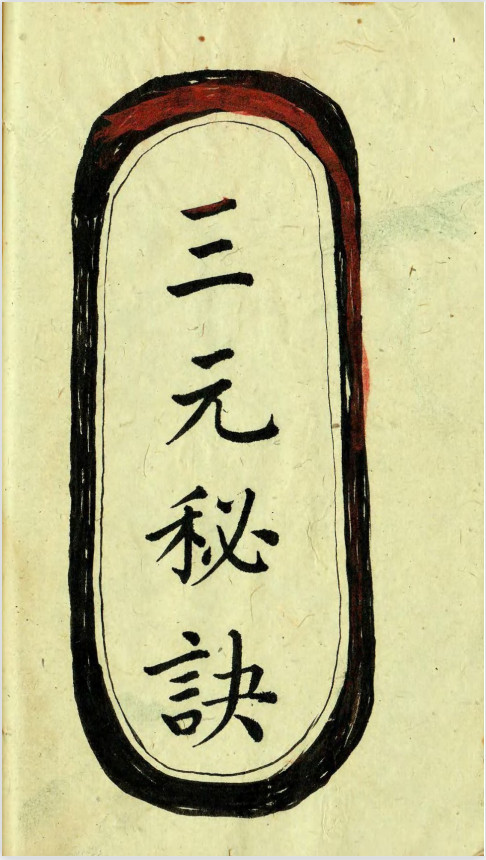 三元秘訣